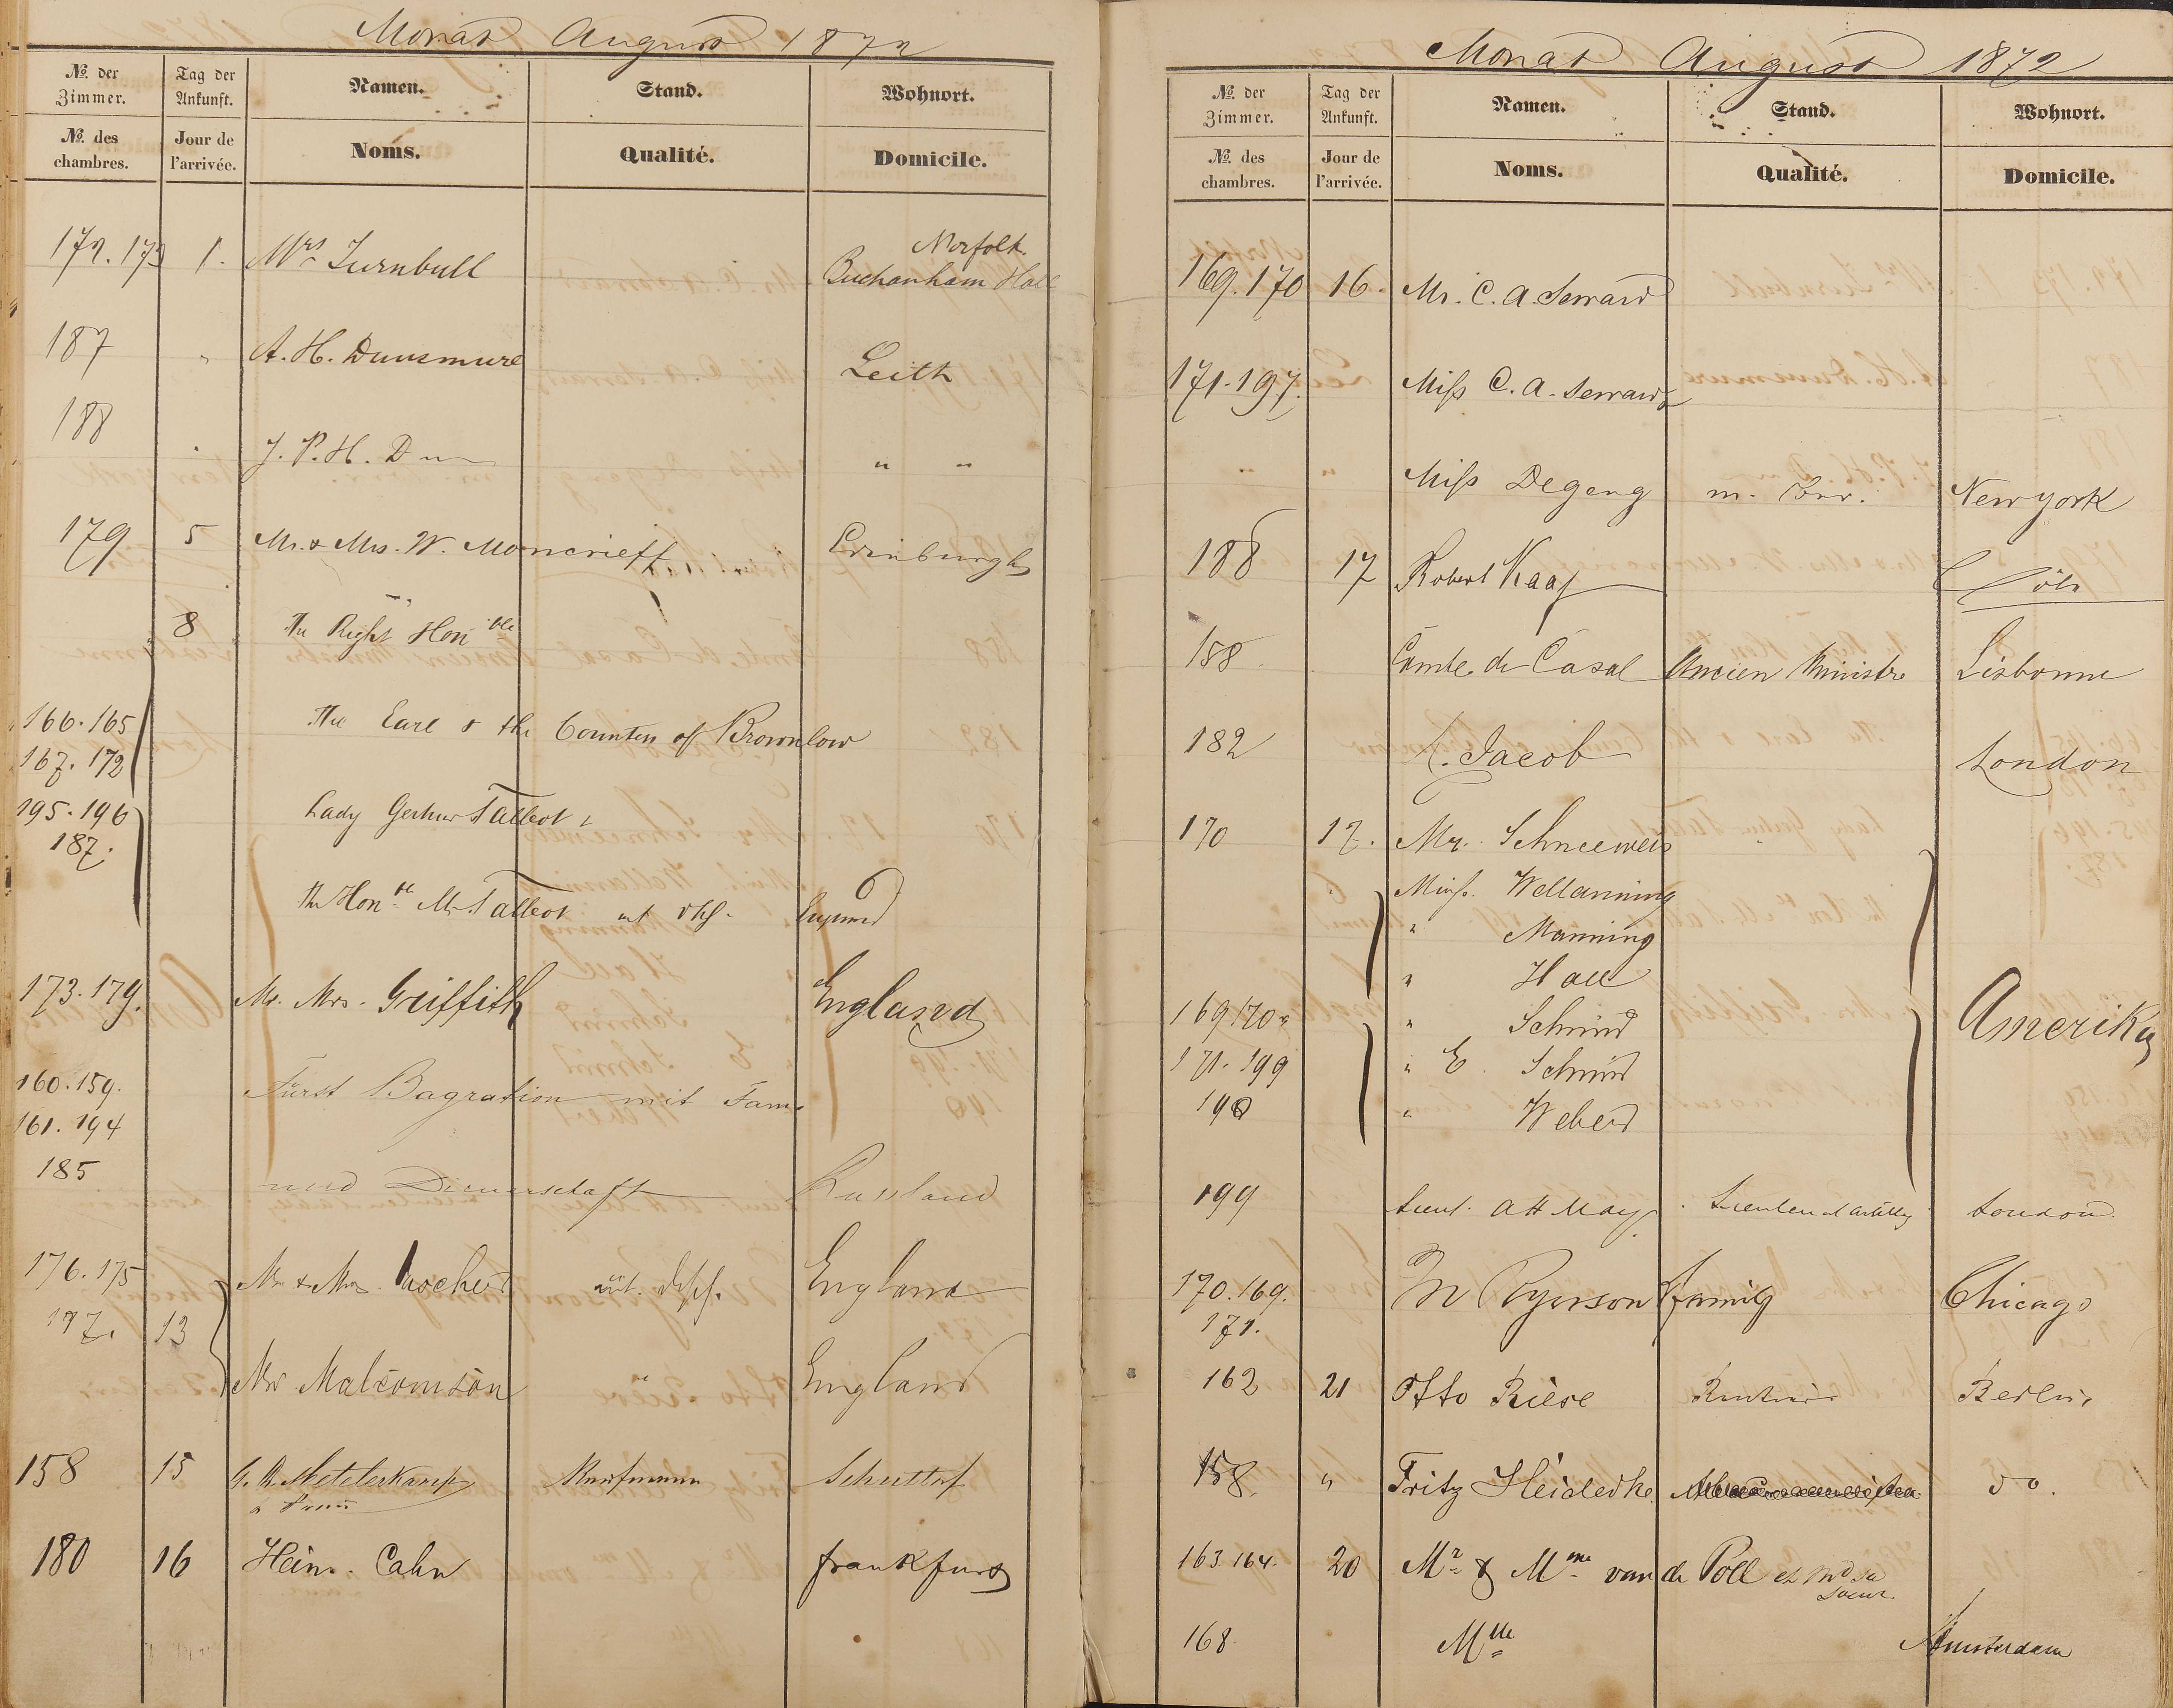 Monat August 1872
No. der Zimmer. Tag der Ankunft. Namen. Stand. Wohnort.
No. des chambres. Jour de l'arrivée. Noms. Qualité. Domicile.
172.173 1. Mrs Turnbull Norfolk.
Buchanham Hall
187 " A. H. Dunsmure Leith
188 " J. P. H. D " "
179 5 Mr. & Mrs. W. Moncrieff Edinburgh
8 The Right Honble
166.165 The Earl & the Countess of Brownlow
167.172
195.196 Lady Talbot &
187.
the Honble Mr Talbot
173.179. Mr. Mrs. Griffith England
160.159. Fürst Bagration mit Fam.
161.194
185 und Dienerschaft Russland
176.175 Mr & Mrs England
177. 13
Mr Malcomson " England
158 15 Kaufmann Schüttorf
180 16 Heinr. Cahn Frankfurt
Monat August 1872
No. der Zimmer. Tag der Ankunft. Namen. Stand. Wohnort.
No. des chambres. Jour de l'arrivée. Noms. Qualité. Domicile.
169.170 16. Mr. C. A. Seward
171.197. Miss C. A. Seward
" " Miss Degeng m. New york
188 17 Robert Kaaf Cöln
158. Comte de Casal Ancien Ministre Lisbonne
182 Jacob London
170 17. Mr. Schneeweis
Miss. Wellanning
" Manning
" Hall
169 170 " Schmid Amerika
171.199 " E. Schmid
190 " Weber
199 Lieut. A H May London
170.169. Ryerson family Chicago
171.
162 21 Otto Riese Rentier Berlin
158. " Fritz Heidecke do.
163 164. 20 Mr & Mme van de Poll et sa
soeur.
168. Mlle Amsterdam